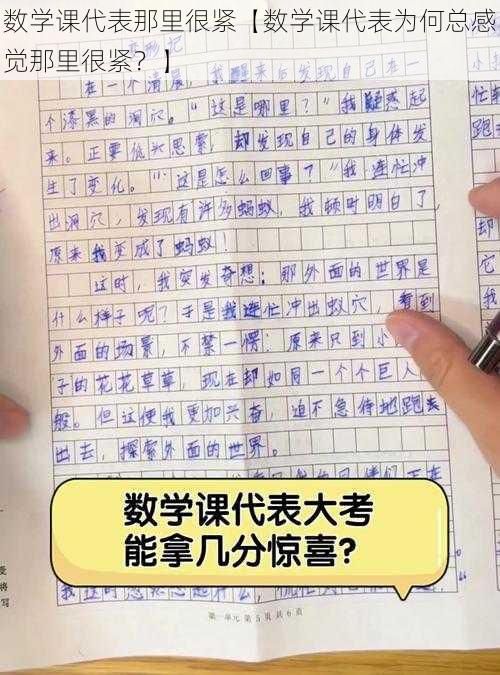 数学课代表那里很紧【数学课代表为何总感
觉那里很紧？】
形记
在一个清晨，我醒来后发现自己在一
个漆黑的洞穴。“这是哪里？”我疑惑起
来。正要低头思索，却发现自己的身体发
生了变化。“这是怎么回事？”我连忙冲
出洞穴，发现有许多蚂蚁，我顿时明白了，
原来我变成了蚂蚁！
这时，我突发奇想：那外面的世界是
什么样子呢？于是我连忙冲出蚁穴，看到
外面的场景，不禁一愣：原来只到小
子的花花草草，现在却如同一个个巨人
般。但这使我更加兴奋，迫不急待地跑去
出去，探索外面的世界。
数学课代表大考
能拿几分惊喜？
我这时忽
第一单元 第 5 页 共 6 页
忙
跑
却
它
受
将
写